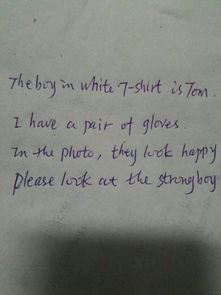 The boy in white T-shirt is Tom.
I have a pair of gloves.
In the photo, they look happy
please look at the strong boy